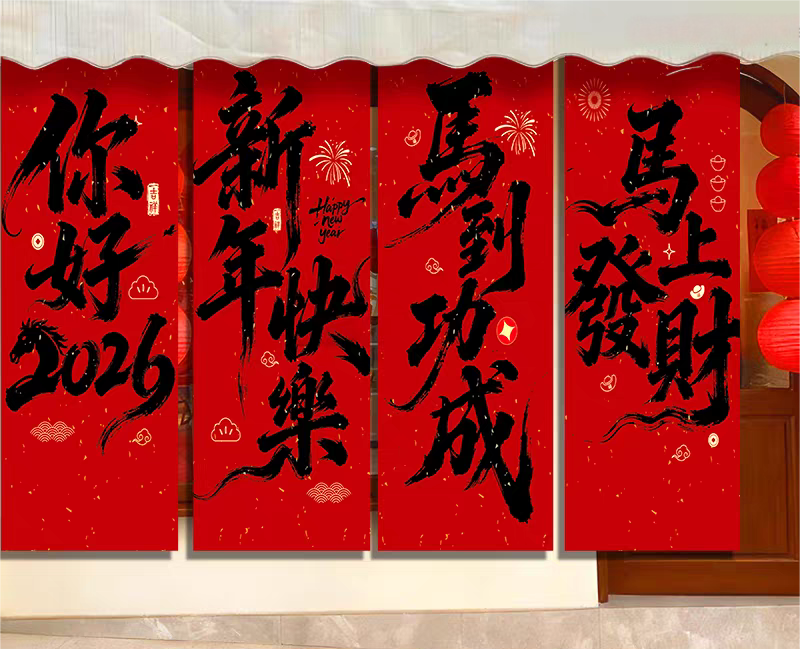 你好
2026
吉祥
新年
快樂
Happy
new
year
吉祥
馬到
功成
馬上
發財